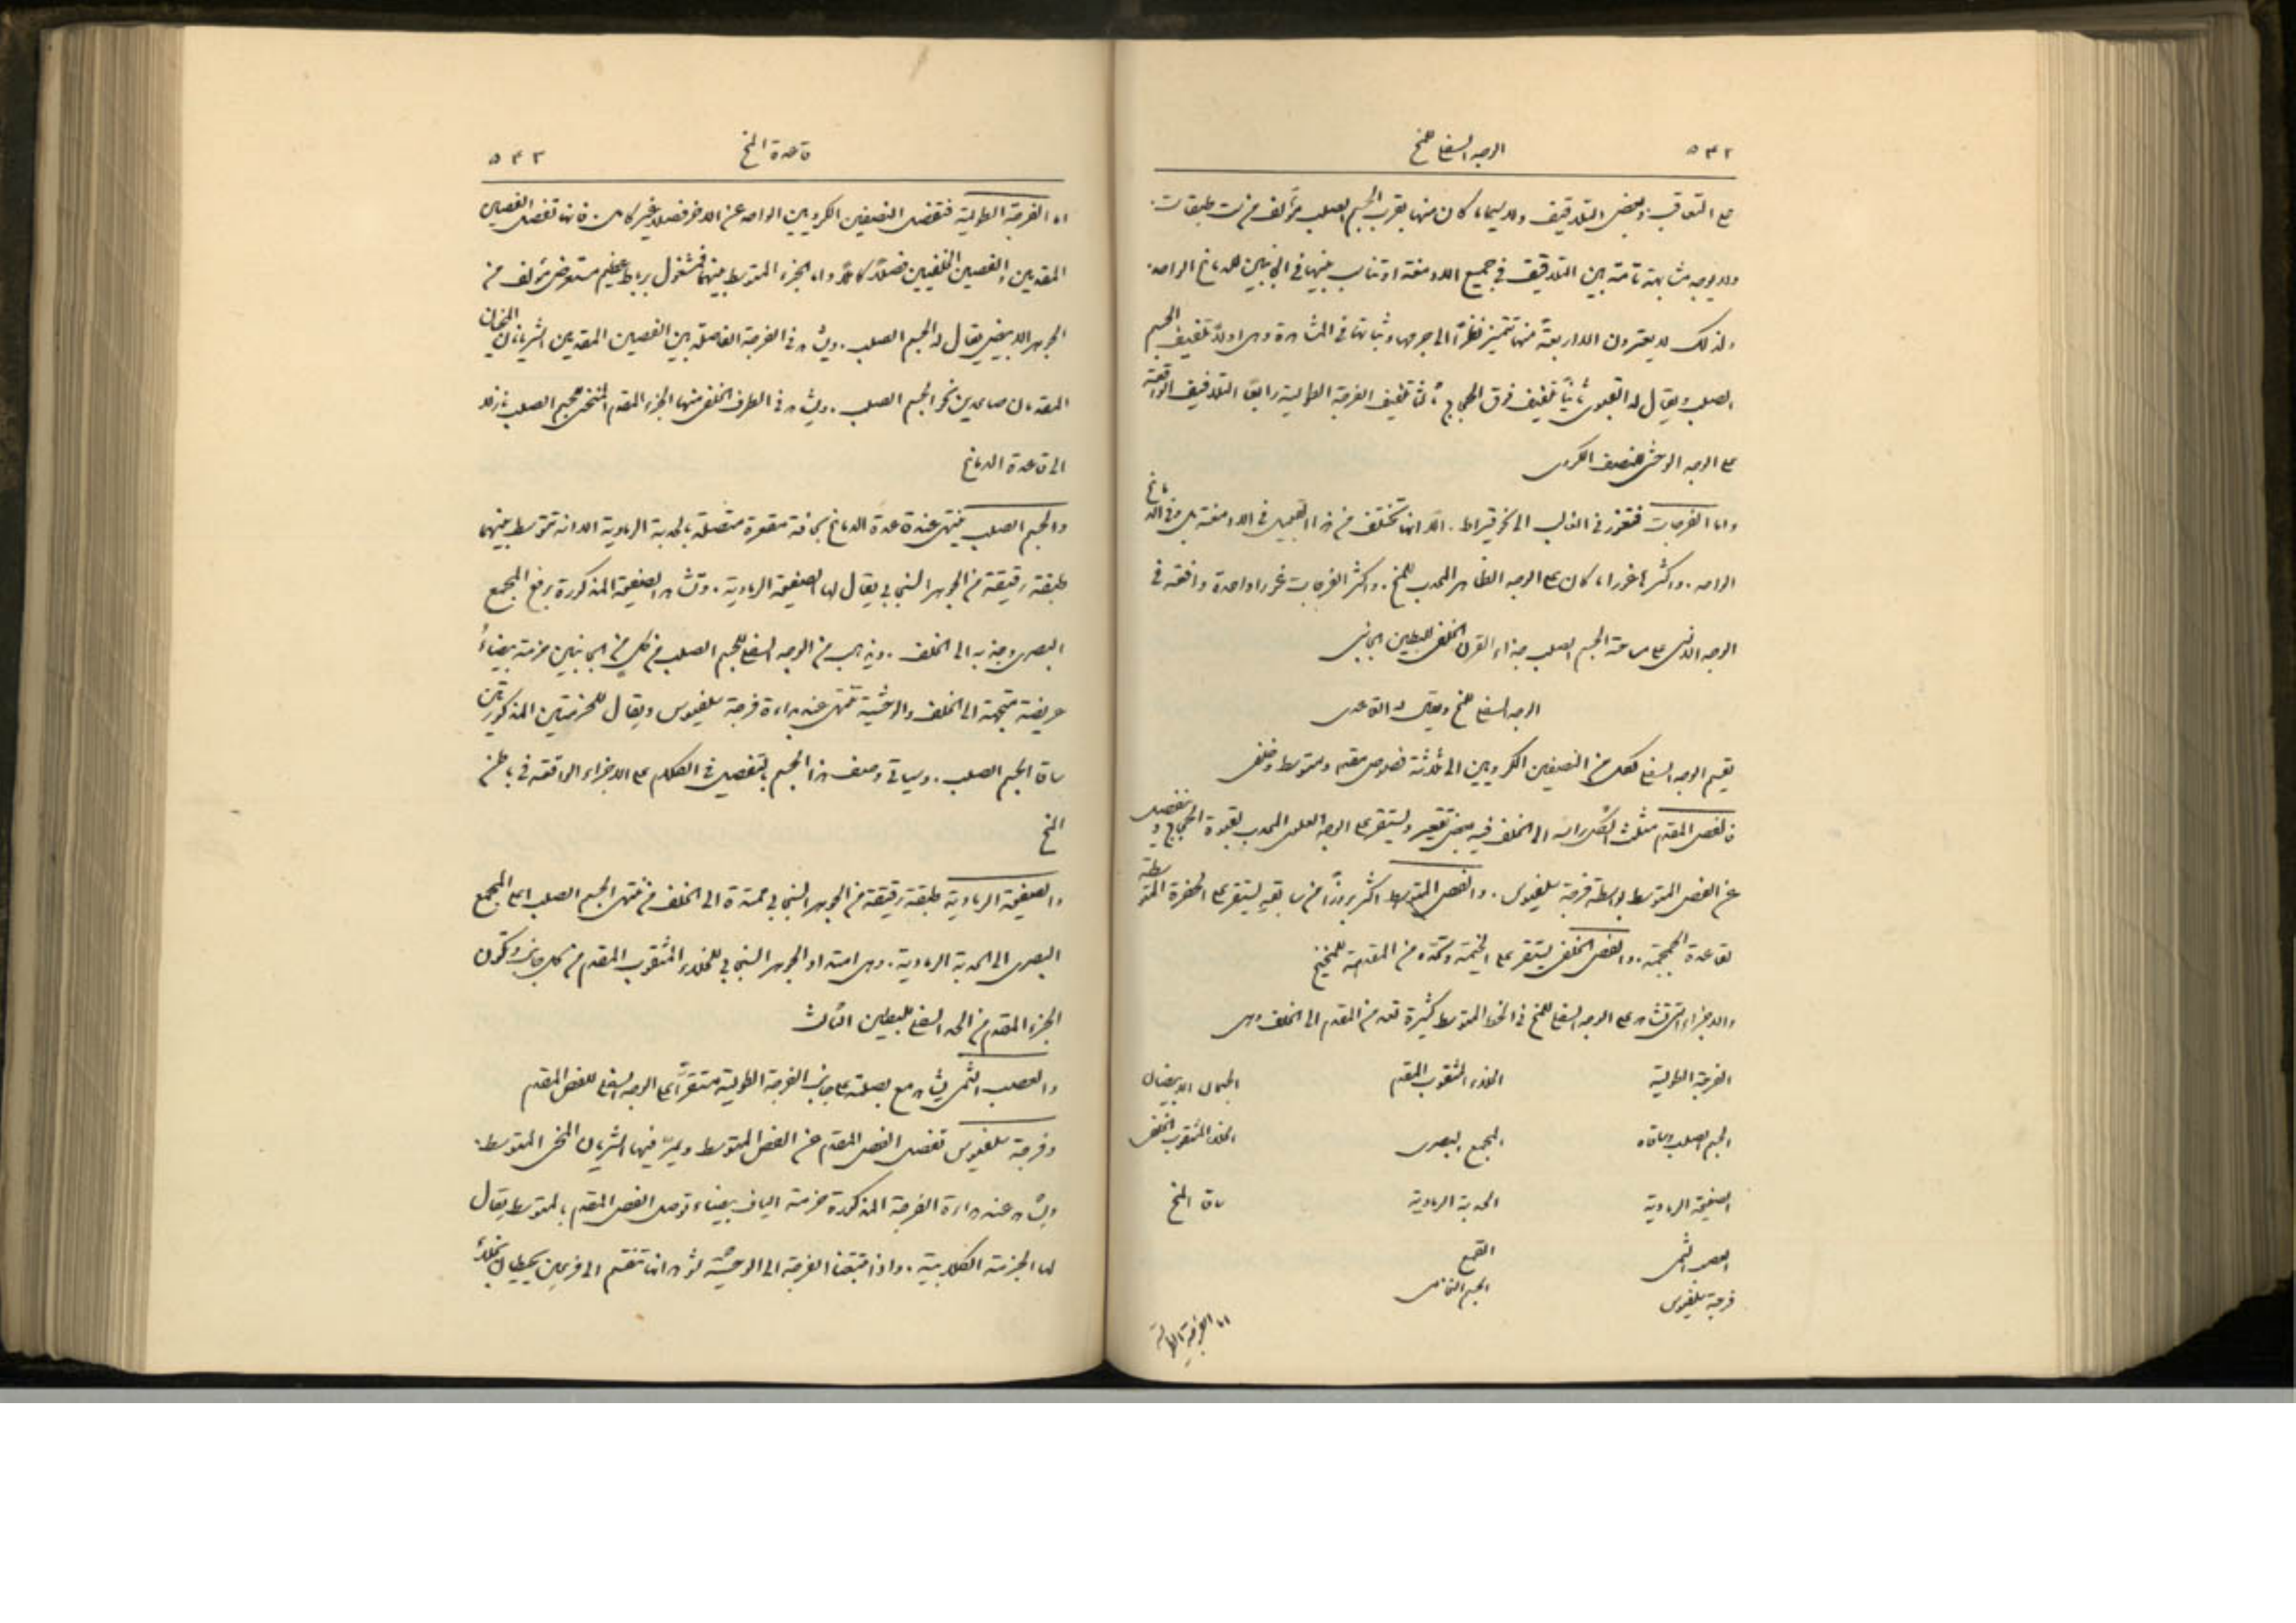 ٥٤٢
الوجه السفلي للمخ
على التعاقب. وبعض التلافيف ولا سيما ما كان منها بقرب الجسم الصلب مؤلف من ست طبقات.
ولا يوجد مشابهة تامة بين التلافيف في جميع الادمغة او تناسب بينها في الجانبين للدماغ الواحد.
ولذلك لا يعتبرون الا اربعة منها تتميز نظرًا الى جرمها وثباتها في المشاهدة وهي اولًا تلفيف الجسم
الصلب ويقال له القبوي ثانيًا تلفيف فوق الحجاج ثالثًا تلفيف الفرجة الطولية رابعًا التلافيف الواقعة
على الوجه الوحشي للنصف الكروي
واما الفرجات فتغور في الغالب الى نحو قيراط. الا انها تختلف من هذا القبيل في الادمغة بل في الدماغ
الواحد. واكثرها غورا ما كان على الوجه الظاهر المحدب للمخ. واكثر الفرجات غورا واحدة واقعة في
الوجه الانسي على مسامتة الجسم الصلب بحذاء القرن الخلفي للبطين الجانبي
الوجه السفلي للمخ ويقال له القاعدي
يقسم الوجه السفلي لكل من النصفين الكرويين الى ثلاثة فصوص مقدم ومتوسط وخلفي
فالفص المقدم مثلث الشكل راسه الى الخلف فيه بعض تقعير ويستقر على الوجه العلوي المحدب لقبوة الحجاج وينفصل
عن الفص المتوسط بواسطة فرجة سلفيوس. والفص المتوسط اكثر بروزًا من سابقه يستقر على الحفرة المتوسطة
لقاعدة الجمجمة. والفص الخلفي يستقر على الخيمة وتمتده من المقدمة للمخيخ
والاجزاء التي تشاهد على الوجه السفلي للمخ في الخط المتوسط كثيرة تعد من المقدم الى الخلف وهي
الفرجة الطولية الخلاء المثقوب المقدم الجسمان الابيضان
الجسم الصلب وساقاه المجمع البصري الخلاء المثقوب الخلفي
الصفيحة الرمادية الحدبة الرمادية ساقا المخ
العصب الشمي القمع
فرجة سلفيوس الجسم النخامي
اما الفرجة الطولية
٥٤٣
قاعدة المخ
اما الفرجة الطولية فتفصل النصفين الكرويين الواحد عن الاخر فصلًا غير كامل. فانها تفصل الفصين
المقدمين والفصين الخلفيين فصلًا كاملًا واما الجزء المتوسط بينهما فمشغول برباط عظيم مستعرض مؤلف من
الجوهر الابيض يقال له الجسم الصلب. ويشاهد في الفرجة الفاصلة بين الفصين المقدمين الشريانان المخيان
المقدمان صاعدين نحو الجسم الصلب. ويشاهد في الطرف الخلفي منها الجزء المقدم المنحني للجسم الصلب نازلا
الى قاعدة الدماغ
والجسم الصلب ينتهي عند قاعدة الدماغ بحافة مقعرة متصلة بالحدبة الرمادية الا انه تتوسط بينهما
طبقة رقيقة من الجوهر السنجابي يقال لها الصفيحة الرمادية. وتشاهد الصفيحة المذكورة برفع المجمع
البصري وجذبه الى الخلف. ويذهب من الوجه السفلي للجسم الصلب من كل من الجانبين حزمة بيضاءُ
عريضة متجهة الى الخلف والوحشية تنتهي عند بداءة فرجة سلفيوس ويقال للحزمتين المذكورتين
ساقا الجسم الصلب. وسياتي وصف هذا الجسم بالتفصيل في الكلام على الاجزاء الواقعة في باطن
المخ
والصفيحة الرمادية طبقة رقيقة من الجوهر السنجابي ممتدة الى الخلف من منتهى الجسم الصلب على المجمع
البصري الى الحدبة الرمادية. وهي امتداد الجوهر السنجابي للخلاء المثقوب المقدم من كل جانب وتكون
الجزء المقدم من الحد السفلي للبطين الثالث
والعصب الشمي يشاهد مع بصلته على جانب الفرجة الطولية مستقرًّا على الوجه السفلي للفص المقدم
وفرجة سلفيوس تفصل الفص المقدم عن الفص المتوسط ويمر فيها الشريان المخي المتوسط.
ويشاهد عند بداءة الفرجة المذكورة حزمة الياف بيضاء توصل الفص المقدم بالمتوسط يقال
لها الحزمة الكلابية. واذا تتبعنا الفرجة الى الوحشية نشاهد انها تنقسم الى فرعين يحيطان